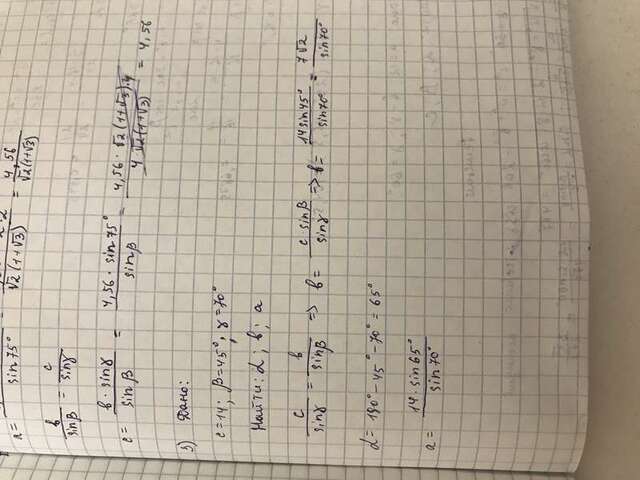 a = / sin 75° = · 2 · 2 / √2(1+√3) = 4,56 / √2(1+√3)
b / sin β = c / sin γ
c = b · sin γ / sin β = 4,56 · sin 75° / sin β = 4,56 · √2(1+√3) · 4 / 4 √2(1+√3) = 4,56
3) Дано:
c = 14; β = 45°; γ = 70°
Найти: α; b; a
c / sin γ = b / sin β => b = c · sin β / sin γ => b = 14 sin 45° / sin 70° = 7√2 / sin 70°
α = 180° − 45° − 70° = 65°
a = 14 · sin 65° / sin 70°